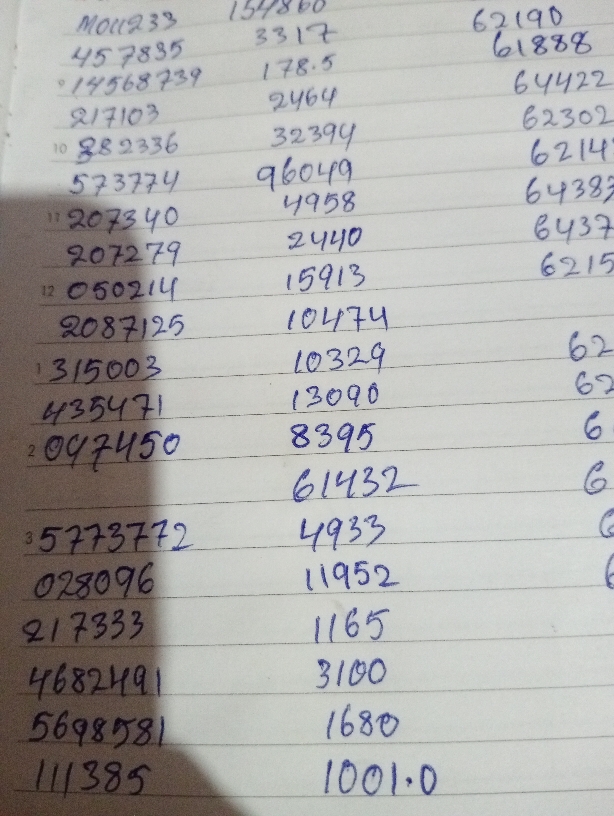 154860
M011233 62190
457835 3317 61888
14568739 178.5 64422
217103 2464 62302
10 282336 32394 6214
573774 96049 6438
11 207340 4958 6437
207279 2440 6215
12 050214 15913
2087125 10474
1 315003 10329 62
435471 13090 62
2 047450 8395 6
61432 6
3 5773772 4933
028096 11952
217333 1165
4682491 3100
5698581 1680
111385 1001.0